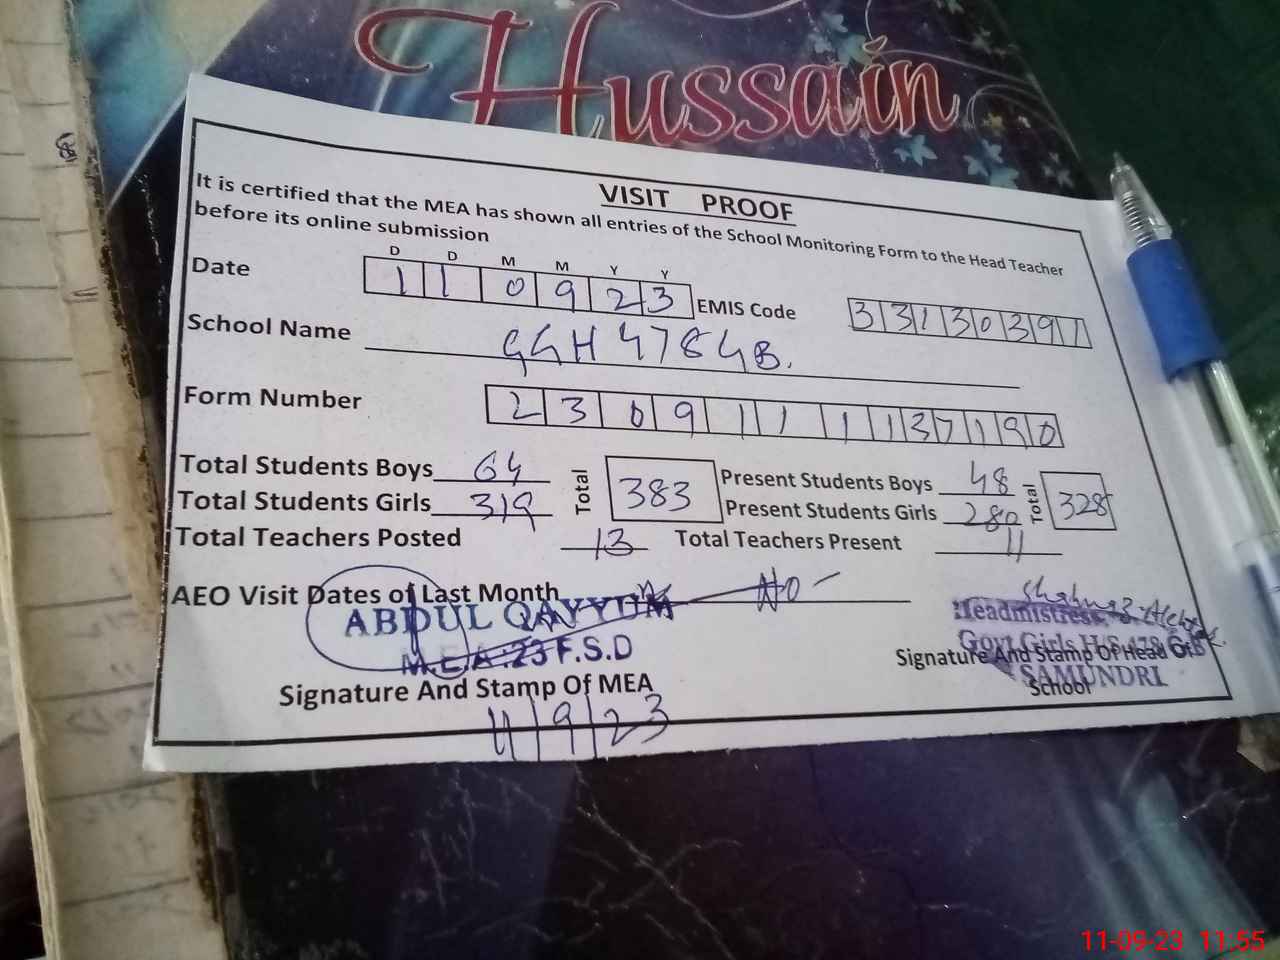 Hussain
VISIT PROOF
It is certified that the MEA has shown all entries of the School Monitoring Form to the Head Teacher
before its online submission
D D M M Y Y
Date 1 1 0 9 2 3 EMIS Code 3 3 1 3 0 3 9 1
School Name GGH 478 GB.
Form Number 2 3 0 9 1 1 1 1 3 7 1 9 0
Total Students Boys 64 Total 383 Present Students Boys 48 Total 328
Total Students Girls 319 Present Students Girls 280
Total Teachers Posted 13 Total Teachers Present 11
AEO Visit Dates of Last Month No
ABDUL QAYYUM
M.E.A :23 F.S.D
Signature And Stamp Of MEA
11/9/23
Headmistress
Govt Girls H/S 478 GB
Signature And Stamp Of Head Of
SAMUNDRI
School
11-09-23 11:55